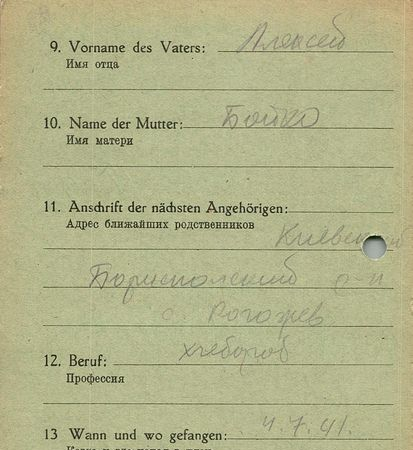 9. Vorname des Vaters: Алексей
Имя отца
10. Name der Mutter: Бойко
Имя матери
11. Anschrift der nächsten Angehörigen:
Адрес ближайших родственников
Киевский
Бориспольский р-н
с. Рогозев
12. Beruf: хлебороб
Профессия
13 Wann und wo gefangen: 4.7.41.